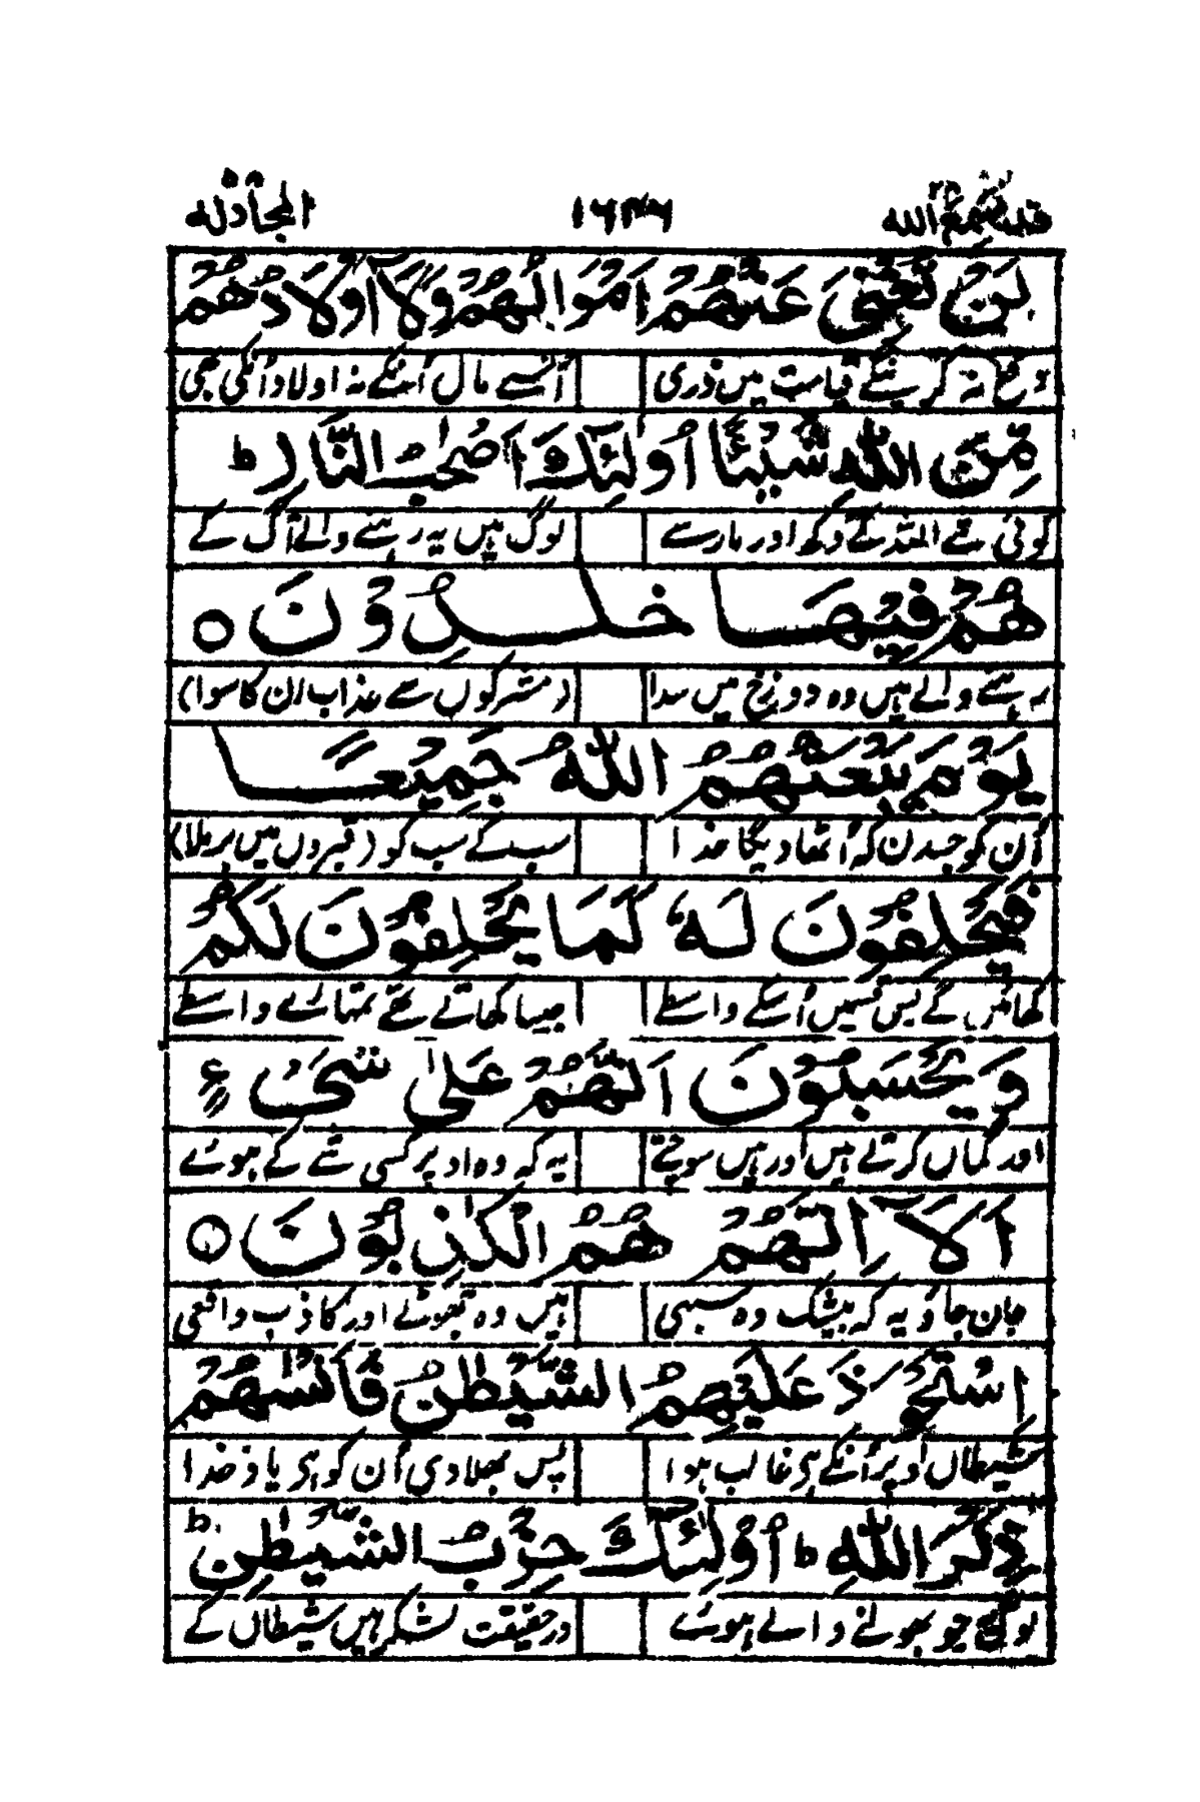 قد سمع الله ۲۸ ۱۶۴۶ المجادلة ۵۸
لَنْ تُغْنِيَ عَنْهُمْ اَمْوَالُهُمْ وَلَآ اَوْلَادُهُمْ
نہ کر ینگے قیامت میں ذری اُنسے مال اُنکے نہ اولاد اُنکی بھی
مِّنَ اللّٰهِ شَيْـًٔا اُولٰٓئِكَ اَصْحٰبُ النَّارِ ط
کوئی شے اللہ کے دکھ اور مار سے لوگ ہیں یہ رہنے والے آگ کے
هُمْ فِيْهَا خٰلِدُوْنَ ○
رہنے والے ہیں وہ دوزخ میں سدا (مشرکوں سے عذاب ان کا سوا)
يَوْمَ يَبْعَثُهُمُ اللّٰهُ جَمِيْعًا
اُن کو جسدن کہ اُٹھا دیگا خدا سب کے سب کو (قبروں میں برملا)
فَيَحْلِفُوْنَ لَهٗ كَمَا يَحْلِفُوْنَ لَكُمْ
کھائیں گے بس قسمیں اُسکے واسطے جیسا کھاتے تھے تمہارے واسطے
وَيَحْسَبُوْنَ اَنَّهُمْ عَلٰى شَيْءٍ
اور گماں کرتے ہیں اور ہیں سوچتے یہ کہ وہ اوپر کسی شے کے ہوئے
اَلَآ اِنَّهُمْ هُمُ الْكٰذِبُوْنَ ○
جان جاؤ یہ کہ بیشک وہ سبھی ہیں وہ جھوٹے اور کاذب واقعی
اِسْتَحْوَذَ عَلَيْهِمُ الشَّيْطٰنُ فَاَنْسٰىهُمْ
شیطاں اوپر اُنکے ہی غالب ہوا پس بھلا دی اُن کو ہی یاد خدا
ذِكْرَ اللّٰهِ ط اُولٰٓئِكَ حِزْبُ الشَّيْطٰنِ ط
جو بھولنے والے ہوئے درحقیقت لشکر ہیں شیطاں کے